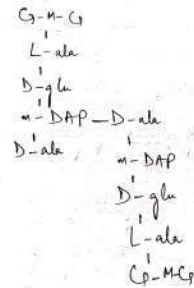 G-M-G
L-ala
D-glu
m-DAP-D-ala
D-ala
m-DAP
D-glu
L-ala
G-M-G